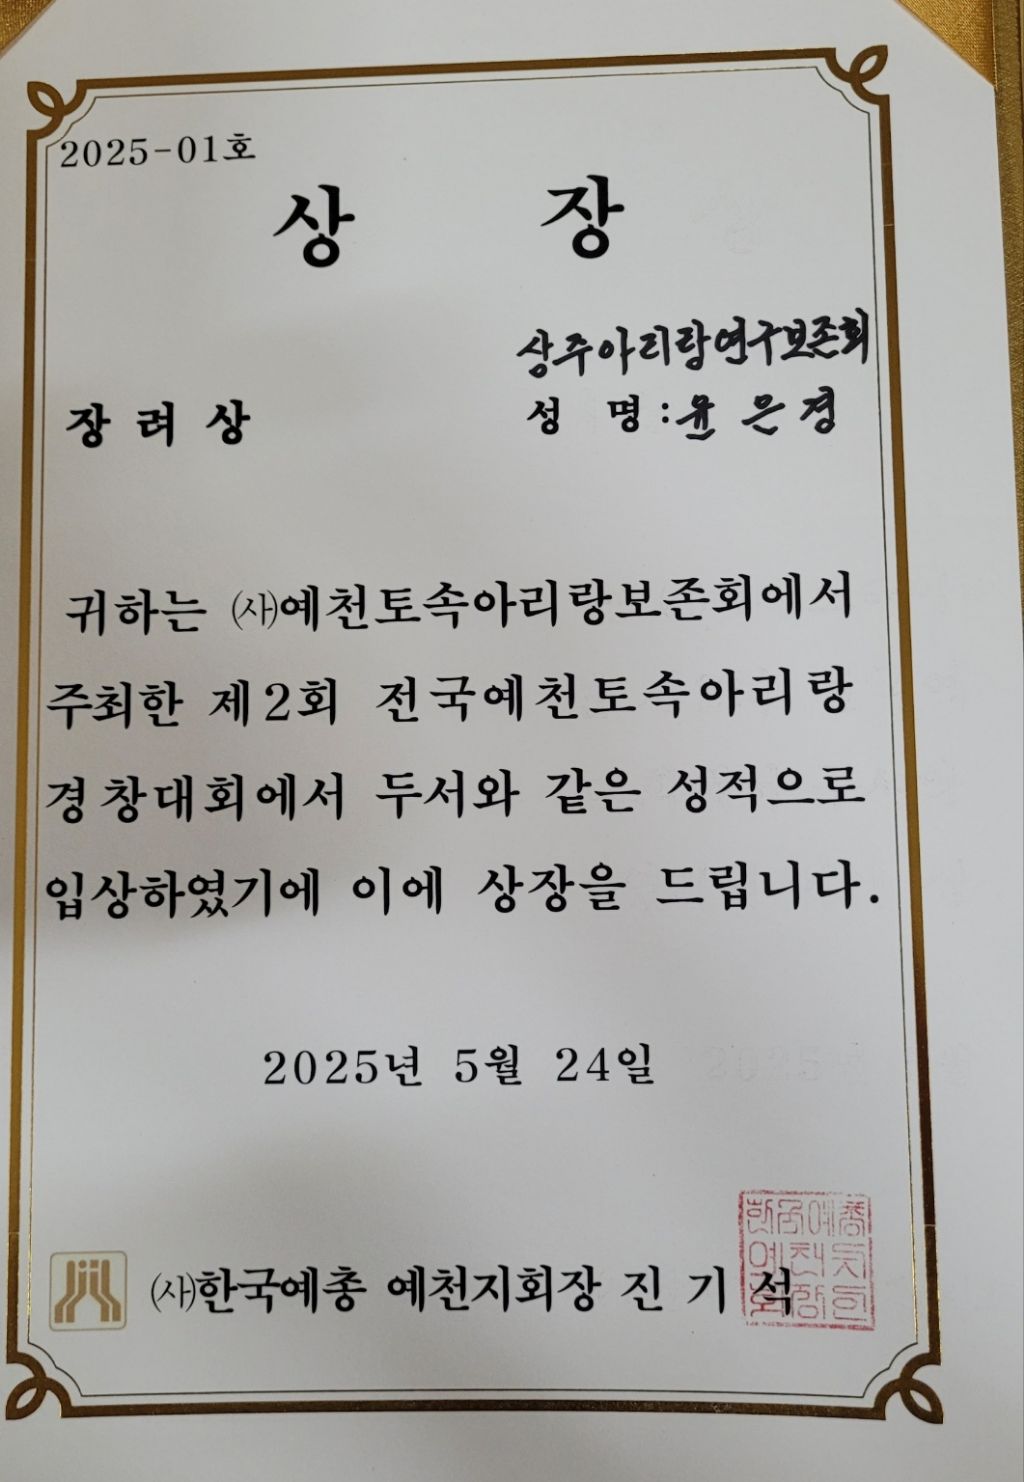 2025-01호
상 장
상주아리랑연구보존회
장 려 상 성 명 : 윤 은 경
귀하는 ㈔예천토속아리랑보존회에서
주최한 제2회 전국예천토속아리랑
경창대회에서 두서와 같은 성적으로
입상하였기에 이에 상장을 드립니다.
2025년 5월 24일
㈔한국예총 예천지회장 진 기 석